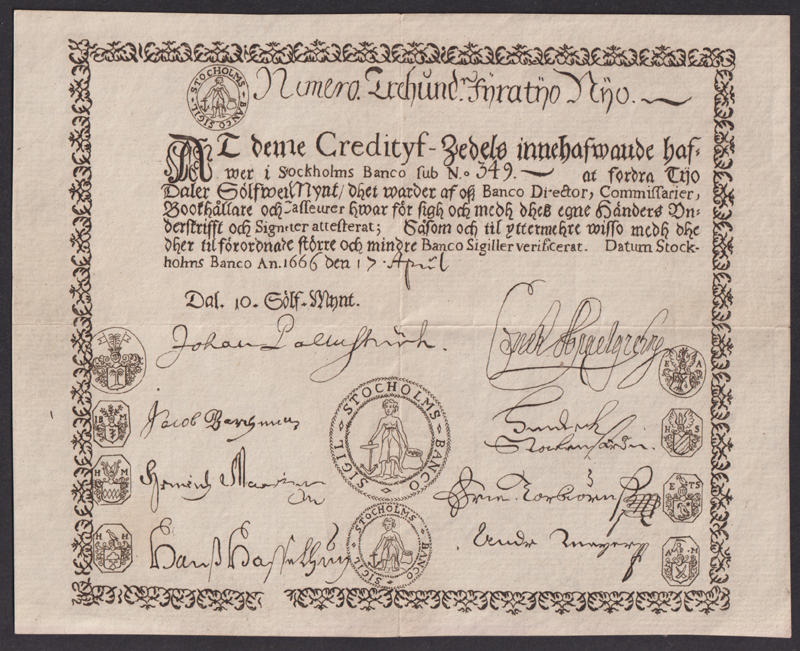 STOCHOLMS BANCO SIGIL
Numero. Trehund. Fyratijo Nijo.
AT denne Credityf-Zedels innehafwande haf-
wer i Stockholms Banco sub N.o 349. at fordra Tijo
Daler Sölfwer Mynt/ dhet warder af oß Banco Director, Commissarier,
Bookhållare och Casseurer hwar för sigh och medh dheß egne Händers Vn-
derskrifft och Signeter attesterat; Såsom och til yttermehre wisso medh dhe
dher til förordnade större och mindre Banco Sigiller verificerat. Datum Stock-
holms Banco An. 1666 den 17. April
Dal. 10. Sölf-Mynt.
Johan Palmstruch.
E A
I B M
Jacob Bergman
STOCHOLMS BANCO SIGIL
Hendrich
H S
H M
Hinrich
E T S
H H
Hanß Hasselhun
STOCHOLMS BANCO SIGIL
Andr Meyer
A M